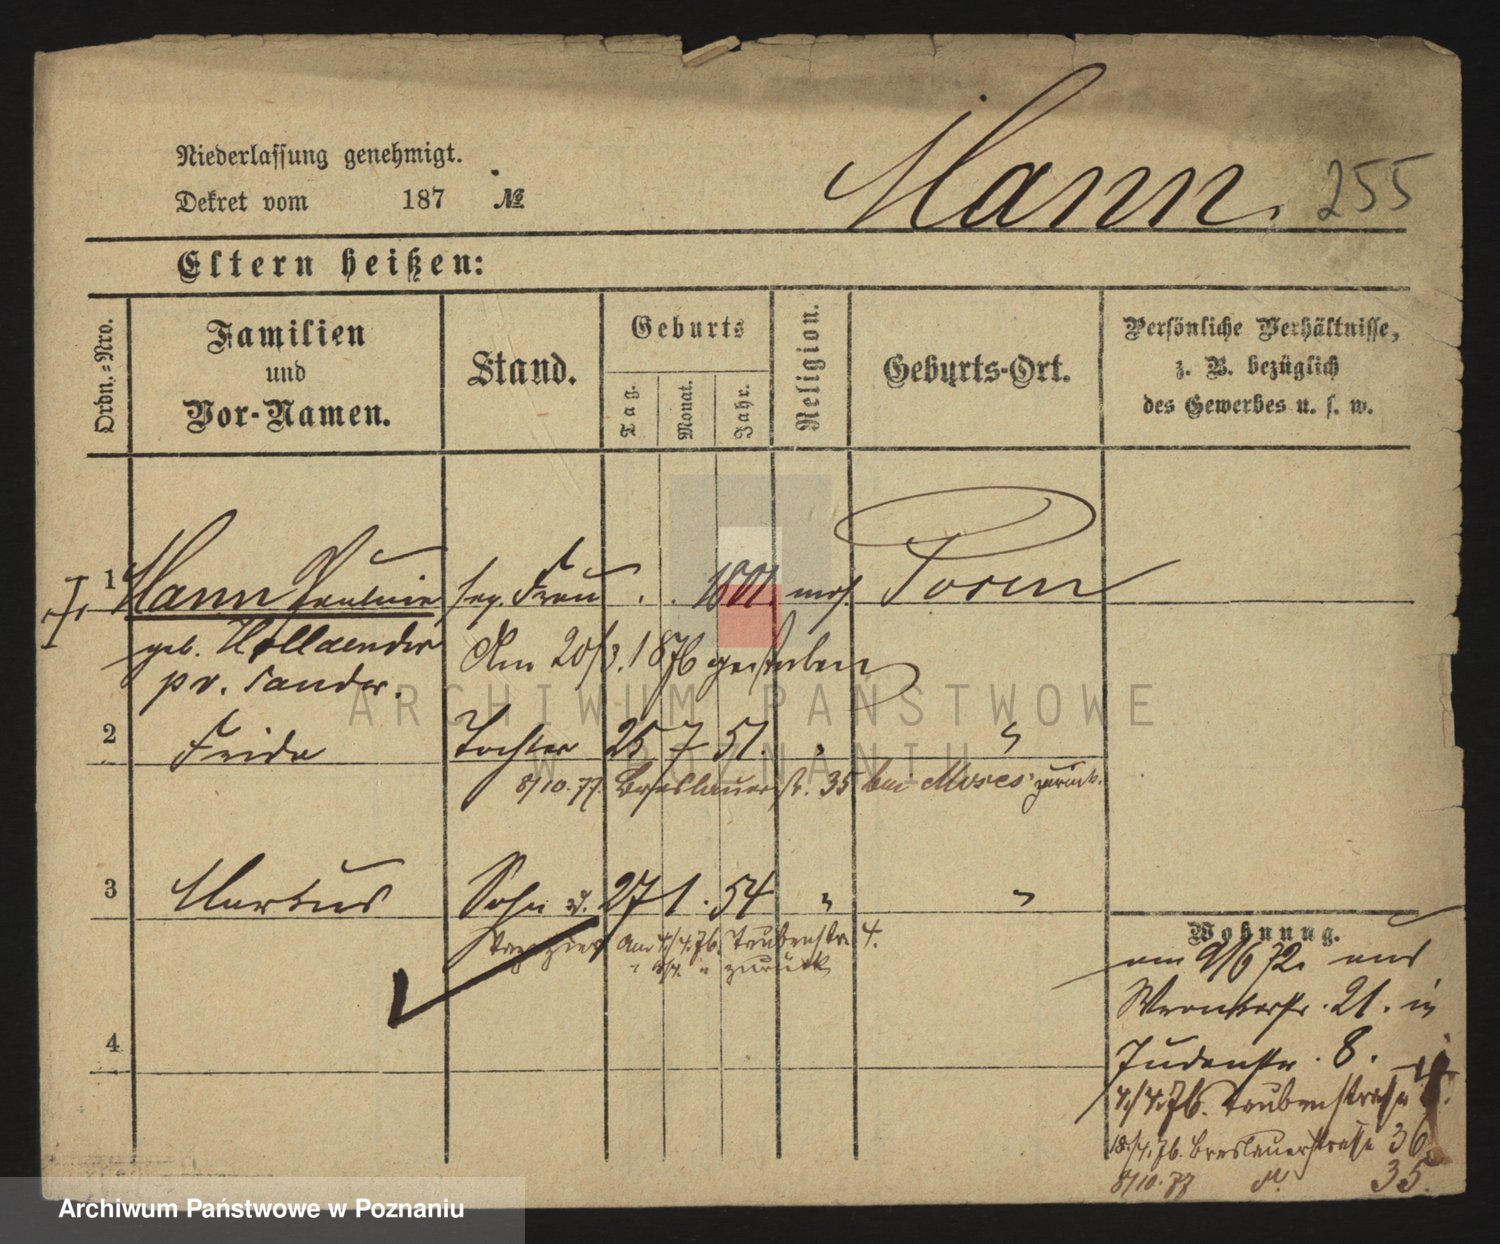 Mann. 255
Niederlassung genehmigt.
Dekret vom 187 №
Eltern heißen:
Ordn.-Nro.
Familien
und
Vor-Namen.
Stand.
Geburts
Tag.
Monat.
Jahr.
Religion.
Geburts-Ort.
Persönliche Verhältnisse,
z. B. bezüglich
des Gewerbes u. s. w.
1 Mann Paulinie sep. Frau . . 1801. mos. Posen
geb. Hollaender Am 20/3. 1876 gestorben
pv. Sander.
2 Frida Tochter 25 7 51. " "
8/10. 77. Breslauerstr. 35 bei Moses zurück.
3 Markus Sohn 27 1. 54 " "
Tapezier Am 4/4. 76. Taubenstr. 4.
" zurück
4
Wohnung.
am 9/6 72. aus
Wronkerstr. 21. in
Judenstr. 8.
4/4. 76. Taubenstraße 4.
18/4. 76. Breslauerstraße 36.
8/10. 77 d. 35.
ARCHIWUM PAŃSTWOWE
W POZNANIU
Archiwum Państwowe w Poznaniu